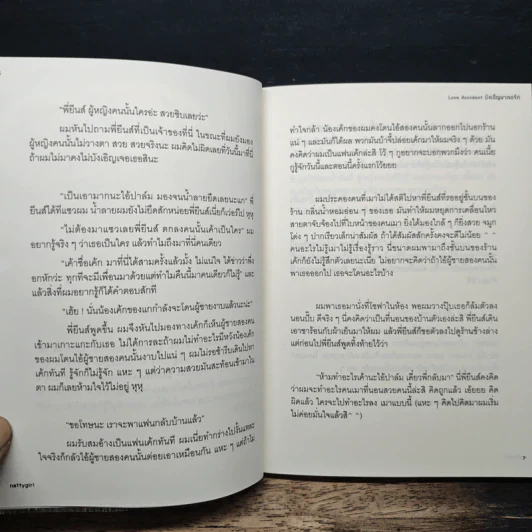 "พี่ยีนส์ ผู้หญิงคนนั้นใครอ่ะ สวยชิบเลยว่ะ"
ผมหันไปถามพี่ยีนส์ที่เป็นเจ้าของที่นี่ ในขณะที่ผมยังมอง
ผู้หญิงคนนั้นไม่วางตา สวย สวยจริงนะ ผมคิดไม่ผิดเลยที่วันนี้มาที่นี่
ถ้าผมไม่มาคงไม่บังเอิญเจอเธอสินะ
"เป็นเอามากนะไอ้ปาล์ม มองจนน้ำลายยืดเลยนะแก" พี่
ยีนส์ได้ทีแซวผม น้ำลายผมยังไม่ยืดสักหน่อยพี่ยีนส์เนี่ยก็เว่อร์ไป หุหุ
"ไม่ต้องมาแซวเลยพี่ยีนส์ ตกลงคนนั้นเค้าเป็นใคร" ผม
อยากรู้จริง ๆ ว่าเธอเป็นใคร แล้วทำไมถึงมาที่นี่คนเดียว
"เค้าชื่อเค้ก มาที่นี่ได้สามครั้งแล้วมั้ง ไม่แน่ใจ ได้ข่าวว่าเพิ่ง
อกหักว่ะ ทุกทีจะมีเพื่อนมาด้วยแต่ทำไมคืนนี้มาคนเดียวก็ไม่รู้" และ
แล้วสิ่งที่ผมอยากรู้ก็ได้คำตอบสักที
"เฮ้ย ! นั่นน้องเค้กของแกกำลังจะโดนผู้ชายงาบแล้วนะน่ะ"
พี่ยีนส์พูดขึ้น ผมจึงหันไปมองทางเค้กก็เห็นผู้ชายสองคน
เข้ามาเกาะแกะกับเธอ ไม่ได้การละถ้าผมไม่ทำอะไรมีหวังน้องเค้ก
ของผมโดนไอ้ผู้ชายสองคนนั้นงาบไปแน่ ๆ ผมไม่รอช้ารีบเดินไปหา
เค้กทันที รู้จักก็ไม่รู้จัก แหะ ๆ แต่ว่าความสวยมันสะท้อนเข้ามาใน
ตา ผมก็เลยห้ามใจไว้ไม่อยู่ หุหุ
"ขอโทษนะ เราจะพาแฟนกลับบ้านแล้ว"
ผมรับสมอ้างเป็นแฟนเค้กทันที ผมเนี่ยทำกร่างไปงั้นแหละ
ใจจริงก็กลัวไอ้ผู้ชายสองคนนั้นต่อยเอาเหมือนกัน แหะ ๆ แต่ถ้าไม่
nattygirl
Love Accident บังเอิญมาเจอรัก
ทำใจกล้า น้องเค้กของผมคงโดนไอ้สองคนนั้นลากออกไปนอกร้าน
แน่ ๆ และมันก็ได้ผล พวกมันบ้าจี้ปล่อยเค้กมาให้ผมจริง ๆ ด้วย มัน
คงคิดว่าผมเป็นแฟนเค้กล่ะสิ โว้ ๆ กูอยากจะบอกพวกมึงว่า คนเนี้ย
กูรู้จักวันนี้และตอนนี้ครั้งแรกโว้ยยย
ผมประคองคนที่เมาไม่ได้สติไปหาพี่ยีนส์ที่รออยู่ชั้นบนของ
ร้าน กลิ่นน้ำหอมอ่อน ๆ ของเธอ มันทำให้ผมหยุดการเคลื่อนไหว
สายตาจับจ้องไปที่ใบหน้าของคนเมา ยิ่งได้มองใกล้ ๆ ก็ยิ่งสวย จมูก
โด่ง ๆ ปากเรียวเล็กน่าสัมผัส ถ้าได้สัมผัสสักครั้งคงจะดีไม่น้อย ^ ^
คนอะไรไม่รู้เมาไม่รู้เรื่องรู้ราว นี่ขนาดผมพามาถึงชั้นบนของร้าน
เค้กก็ยังไม่รู้สึกตัวเลยนะเนี่ย ไม่อยากจะคิดว่าถ้าไอ้ผู้ชายสองคนนั้น
พาเธอออกไป เธอจะโดนอะไรบ้าง
ผมพาเธอมานั่งที่โซฟาในห้อง พอผมวางปุ๊บเธอก็ล้มตัวลง
นอนปั๊บ ดีจริง ๆ นี่คงคิดว่าเป็นที่นอนของบ้านตัวเองล่ะสิ พี่ยีนส์เดิน
เอาชาร้อนกับผ้าเย็นมาให้ผม แล้วพี่ยีนส์ก็ขอตัวลงไปดูร้านข้างล่าง
แต่ก่อนไปพี่ยีนส์พูดทิ้งท้ายไว้ว่า
"ห้ามทำอะไรเค้านะไอ้ปาล์ม เดี๋ยวพี่กลับมา" นี่พี่ยีนส์คงคิด
ว่าผมจะทำอะไรคนเมาที่นอนสวยคนนี้ล่ะสิ คิดถูกแล้ว เอ้อยย คิด
ผิดแล้ว ใครจะไปทำอะไรลง เมาแบบนี้ (แหะ ๆ คิดไปคิดมาผมเริ่ม
ไม่ค่อยมั่นใจแล้วสิ ^ ^)
7